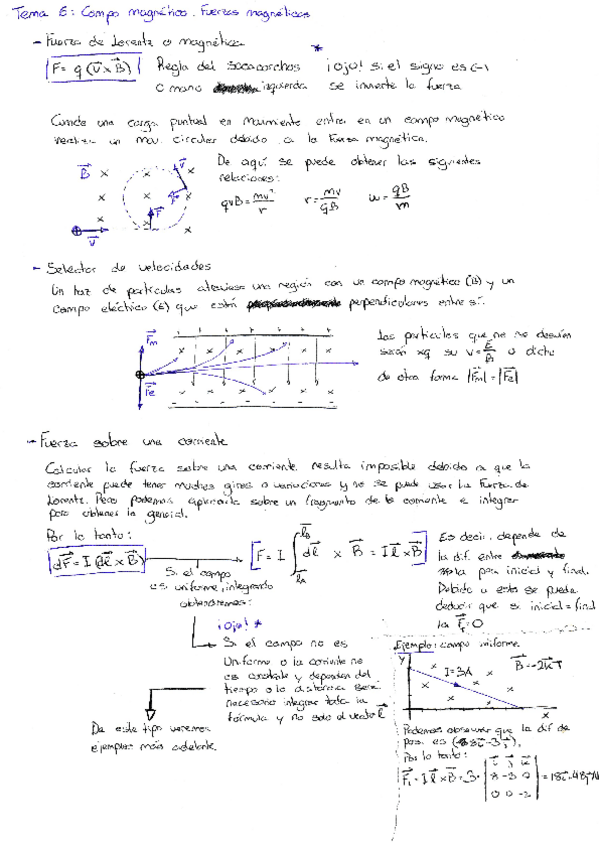 Tema 6: Campo magnético. Fuerzas magnéticas
- Fuerza de Lorentz o magnética
F = q (v⃗ x B⃗) Regla del sacacorchos ¡ojo! si el signo es (-)
o mano izquierda se invierte la fuerza
Cuando una carga puntual en movimiento entra en un campo magnético
realiza un mov. circular debido a la fuerza magnética.
De aquí se puede obtener las siguientes
relaciones:
qvB = mv²/r r = mv/qB w = qB/m
B⃗ v⃗ F⃗ F⃗ v⃗
- Selector de velocidades
Un haz de partículas atraviesa una región con un campo magnético (B) y un
campo eléctrico (E) que están perpendiculares entre sí.
F⃗m
F⃗e
Las partículas que no se desvían
serán xq su v = E/B o dicho
de otra forma |F⃗m| = |F⃗e|
- Fuerza sobre una corriente
Calcular la fuerza sobre una corriente resulta imposible debido a que la
corriente puede tener muchos giros o variaciones y no se puede usar la Fuerza de
Lorentz. Pero podemos aplicarla sobre un fragmento de la corriente e integrar
para obtener la general.
Por lo tanto:
dF⃗ = I (dl⃗ x B⃗)
Si el campo
es uniforme, integrando
obtendremos:
F = I ∫ dl⃗ x B⃗ = I l⃗ x B⃗
Es decir, depende de
la dif. entre
la pos. inicial y final.
Debido a esto se puede
deducir que si inicial = final
la F⃗ = 0
¡ojo! *
Si el campo no es
Uniforme o la corriente no
es constante y dependen del
tiempo o la distancia será
necesario integrar toda la
fórmula y no solo el vector l⃗
De este tipo veremos
ejemplos más adelante
Ejemplo: campo uniforme
y I = 3A B⃗ = -2k⃗ T
x
Podemos observar que la dif de
pos. es (8i⃗ - 3j⃗).
Por lo tanto:
F⃗ = I l⃗ x B⃗ = 3 · | i⃗ j⃗ k⃗ | = 18i⃗ - 48j⃗ N
8 -3 0
0 0 -2